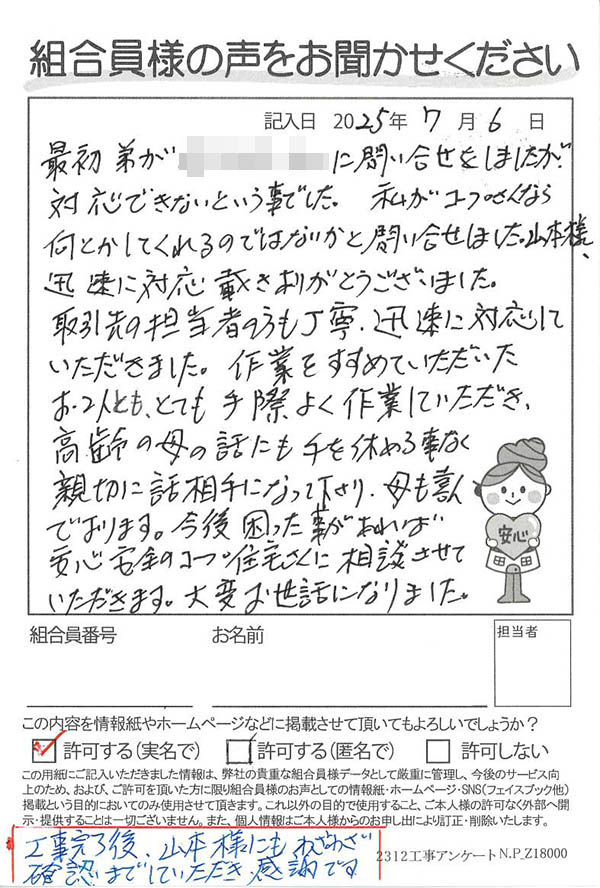 組合員様の声をお聞かせください
記入日 2025年 7月 6日
最初 弟が に問い合せをしましたが、
対応できないという事でした。 私がコープさんなら
何とかしてくれるのではないかと問い合せしました。山本様、
迅速に対応 戴きありがとうございました。
取引先の担当者の方も丁寧、迅速に対応して
いただきました。 作業をすすめていただいた
お2人とも、とても 手際よく作業していただき、
高齢の母の話にも手を休める事なく
親切に話相手になって下さり、母も喜ん
でおります。今後 困った事があれば
安心安全のコープ住宅さんに相談させて
いただきます。大変お世話になりました。
安心
組合員番号 お名前 担当者
この内容を情報紙やホームページなどに掲載させて頂いてもよろしいでしょうか？
許可する(実名で) 許可する(匿名で) 許可しない
この用紙にご記入いただきました情報は、弊社の貴重な組合員様データとして厳重に管理し、今後のサービス向
上のため、および、ご許可を頂いた方に限り組合員様のお声としての情報紙・ホームページ・SNS(フェイスブック他)
掲載という目的においてのみ使用させて頂きます。これ以外の目的で使用すること、ご本人様の許可なく外部へ開
示・提供することは一切ございません。また、個人情報はご本人様からのお申し出により訂正・削除いたします。
工事完了後、山本様にもわざわざ
確認までしていただき 感謝です
2312工事アンケートN.P_Z18000